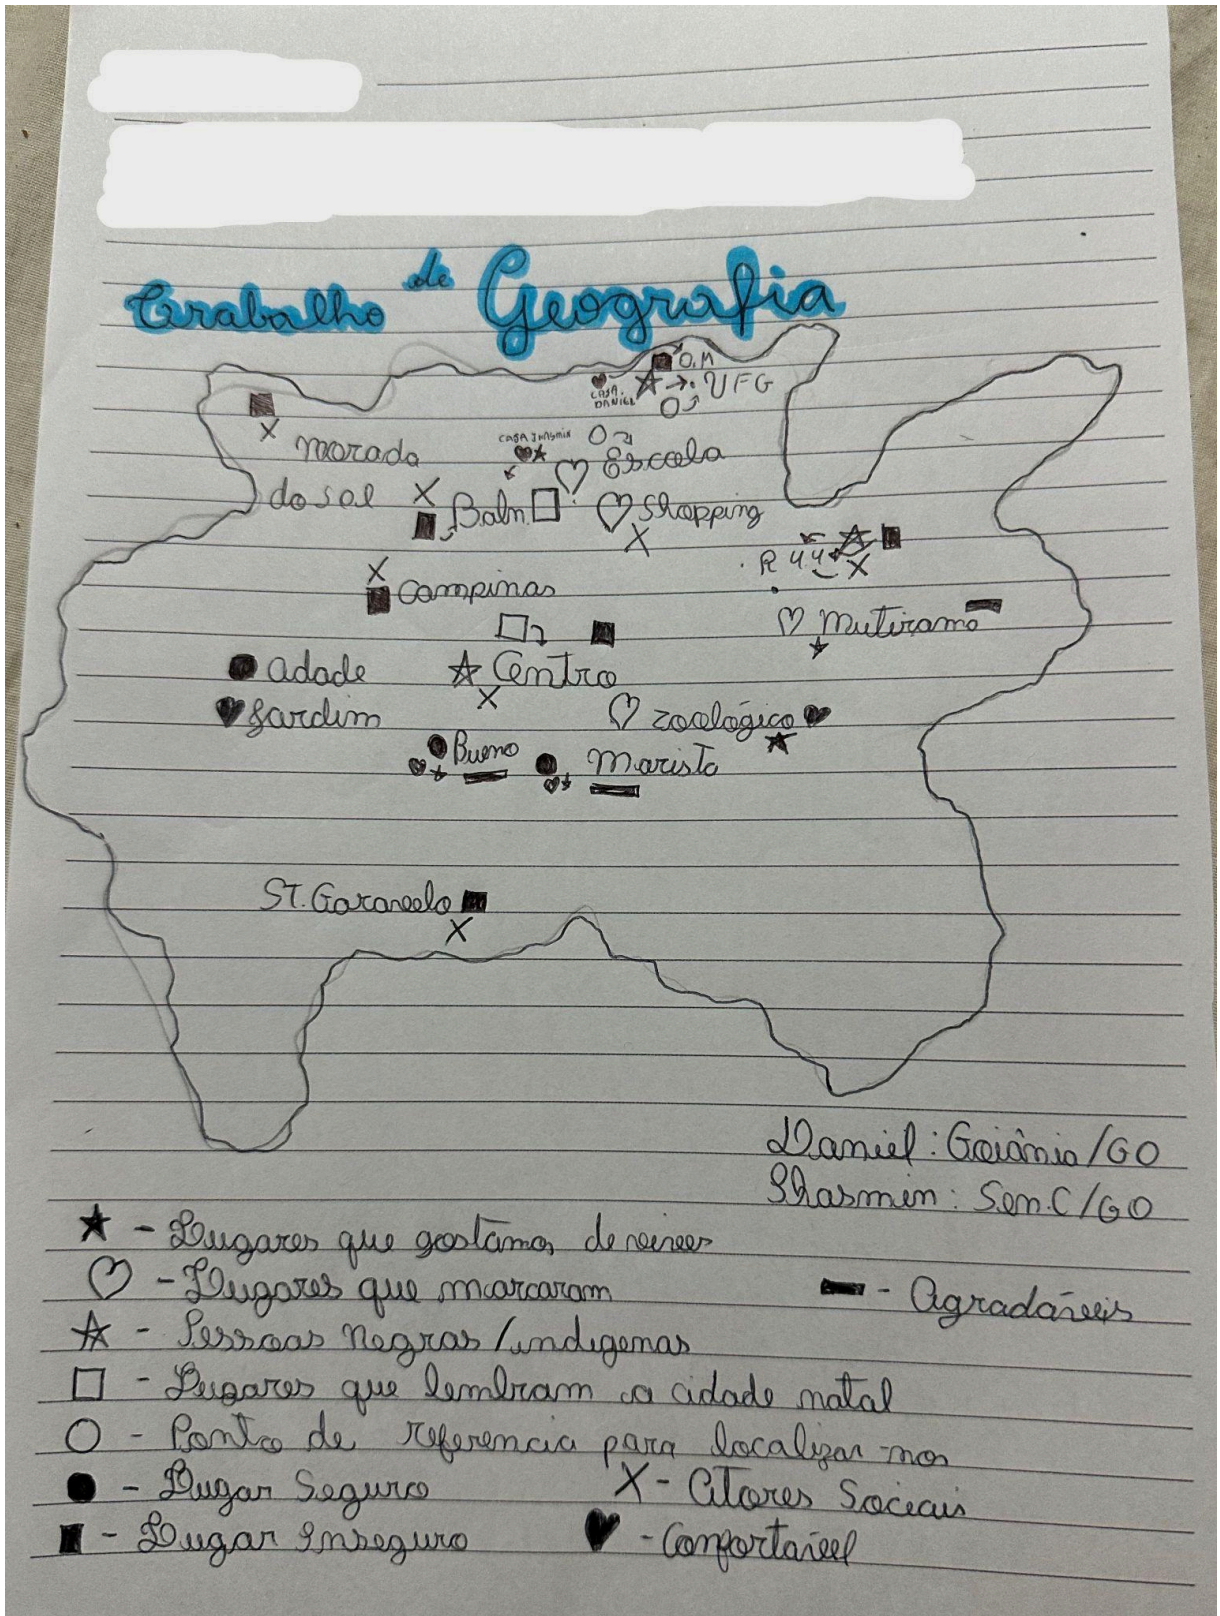 Trabalho de Geografia
O.M
CASA DANIEL
UFG
CASA JHASMIN
Escola
Morada
do sol
Baln.
Shopping
R 44
Campinas
Mutirama
Adade
Centro
Jardim
Zoológico
Bueno
Marista
ST. Garavelo
Daniel: Goiânia/GO
Jhasmin: Sen.C/GO
- Lugares que gostamos de
- Lugares que marcaram
- Agradáveis
- Pessoas Negras/indigenas
- Lugares que lembram a cidade natal
- Ponto de referencia para localizar-nos
- Lugar Seguro
X - Atores Sociais
- Lugar Inseguro
- Confortável